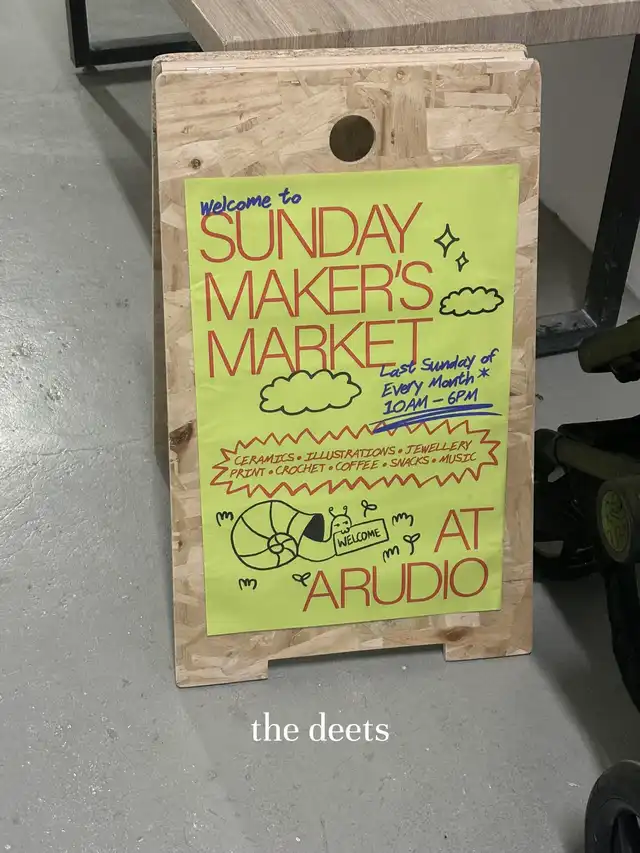 Welcome to
SUNDAY
MAKER'S
MARKET
Last Sunday of
Every Month *
10AM – 6PM
CERAMICS • ILLUSTRATIONS • JEWELLERY
PRINT • CROCHET • COFFEE • SNACKS • MUSIC
WELCOME
AT
ARUDIO
the deets